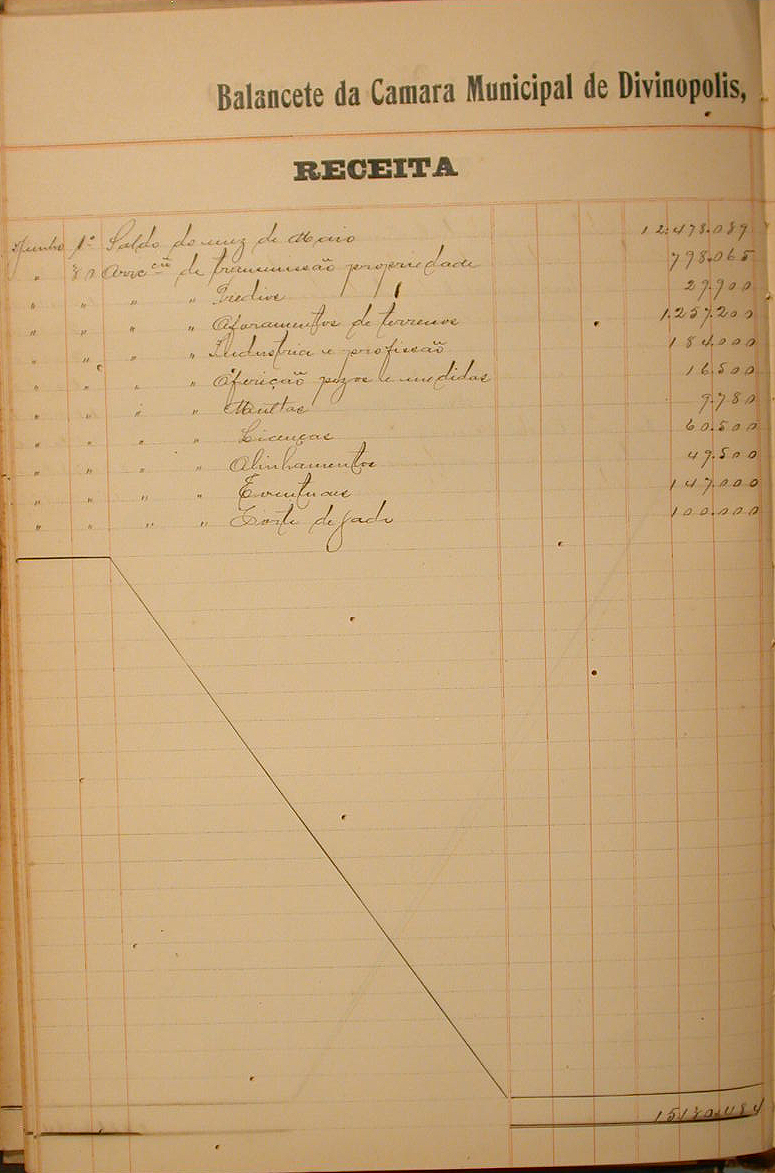 Balancete da Camara Municipal de Divinopolis,
RECEITA
Junho 1º Saldo do mez de Maio 12.478.089
" 30 Arre"cm de transmissão propriedade 798.065
" " " " Predios 29.900
" " " " Aforamentos de terrenos 1.257.200
" " " " Industria e profissão 184.000
" " " " Aferição pezos e medidas 16.500
" " " " Multas 9.780
" " " " Licenças 60.500
" " " " Alinhamentos 49.500
" " " " Eventuaes 147.000
" " " " Córte de gado 100.000
15130.484